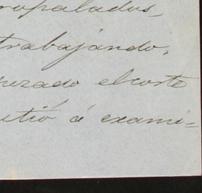 tropalados,
trabajando,
pezado el corte
mitió á exami-